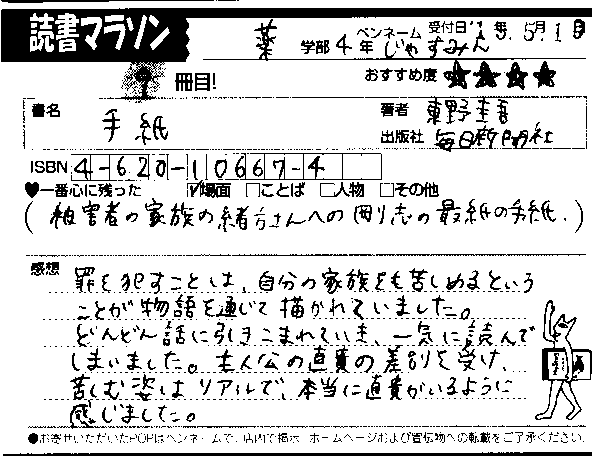 読書マラソン
薬 学部 4 年 ペンネーム じゃすみん 受付日 '13年 5月 1日
9 冊目! おすすめ度 ★★★★
書名 手紙 著者 東野圭吾
出版社 毎日新聞社
ISBN 4-620-10667-4
♥一番心に残った ☑場面 □ことば □人物 □その他
(被害者の家族の緒方さんへの剛志の最紙の手紙.)
感想 罪を犯すことは、自分の家族をも苦しめるという
ことが物語を通じて描かれていました。
どんどん話に引きこまれていき、一気に読んで
しまいました。主人公の直貴の差別を受け、
苦しむ姿はリアルで、本当に直貴がいるように
感じました。
●お寄せいただいたPOPはペンネームで、店内で掲示 ホームページおよび宣伝物への転載をご了承ください.